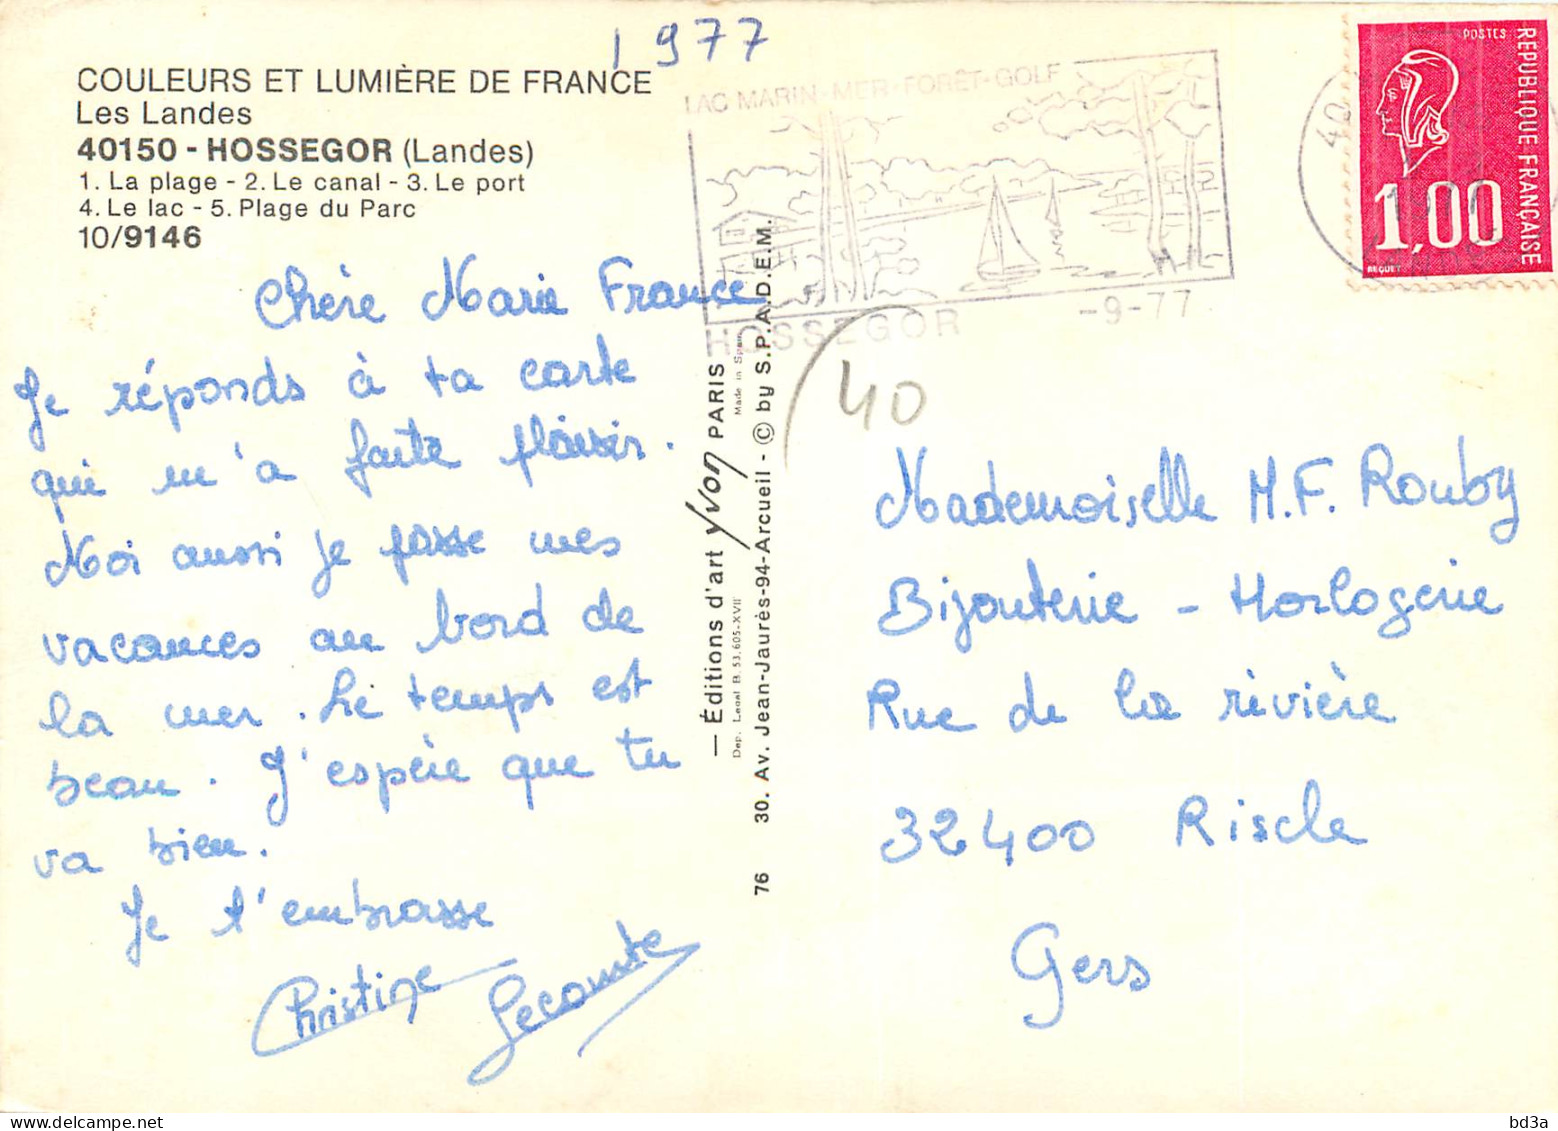 1977
COULEURS ET LUMIÈRE DE FRANCE
Les Landes
40150 - HOSSEGOR (Landes)
1. La plage - 2. Le canal - 3. Le port
4. Le lac - 5. Plage du Parc
10/9146
Chère Marie France
Je réponds à ta carte
qui m'a faite plaisir.
Moi aussi je passe mes
vacances au bord de
la mer. Le temps est
beau. J'espère que tu
va bien.
Je t'embrasse
Christine Lecomte
— Éditions d'art Yvon PARIS
Made in
Dep. Legal B. 53.605-XVII
76 30. Av. Jean-Jaurès-94-Arcueil - © by S.P.A.D.E.M.
LAC MARIN-MER-FORÊT-GOLF
HOSSEGOR
-9-77
40
POSTES
REPUBLIQUE FRANÇAISE
1,00
BEQUET
40
Mademoiselle M.F. Rouby
Bijouterie - Horlogerie
Rue de la rivière
32400 Riscle
Gers
bd3a